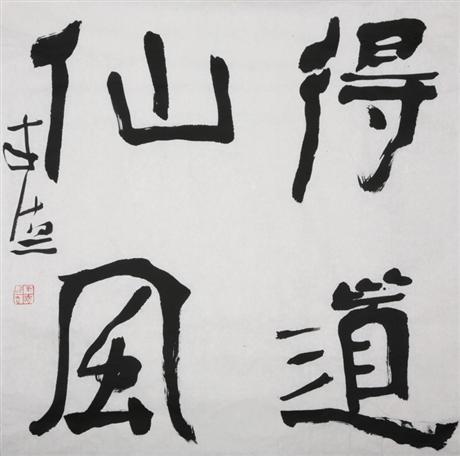 得道
仙风